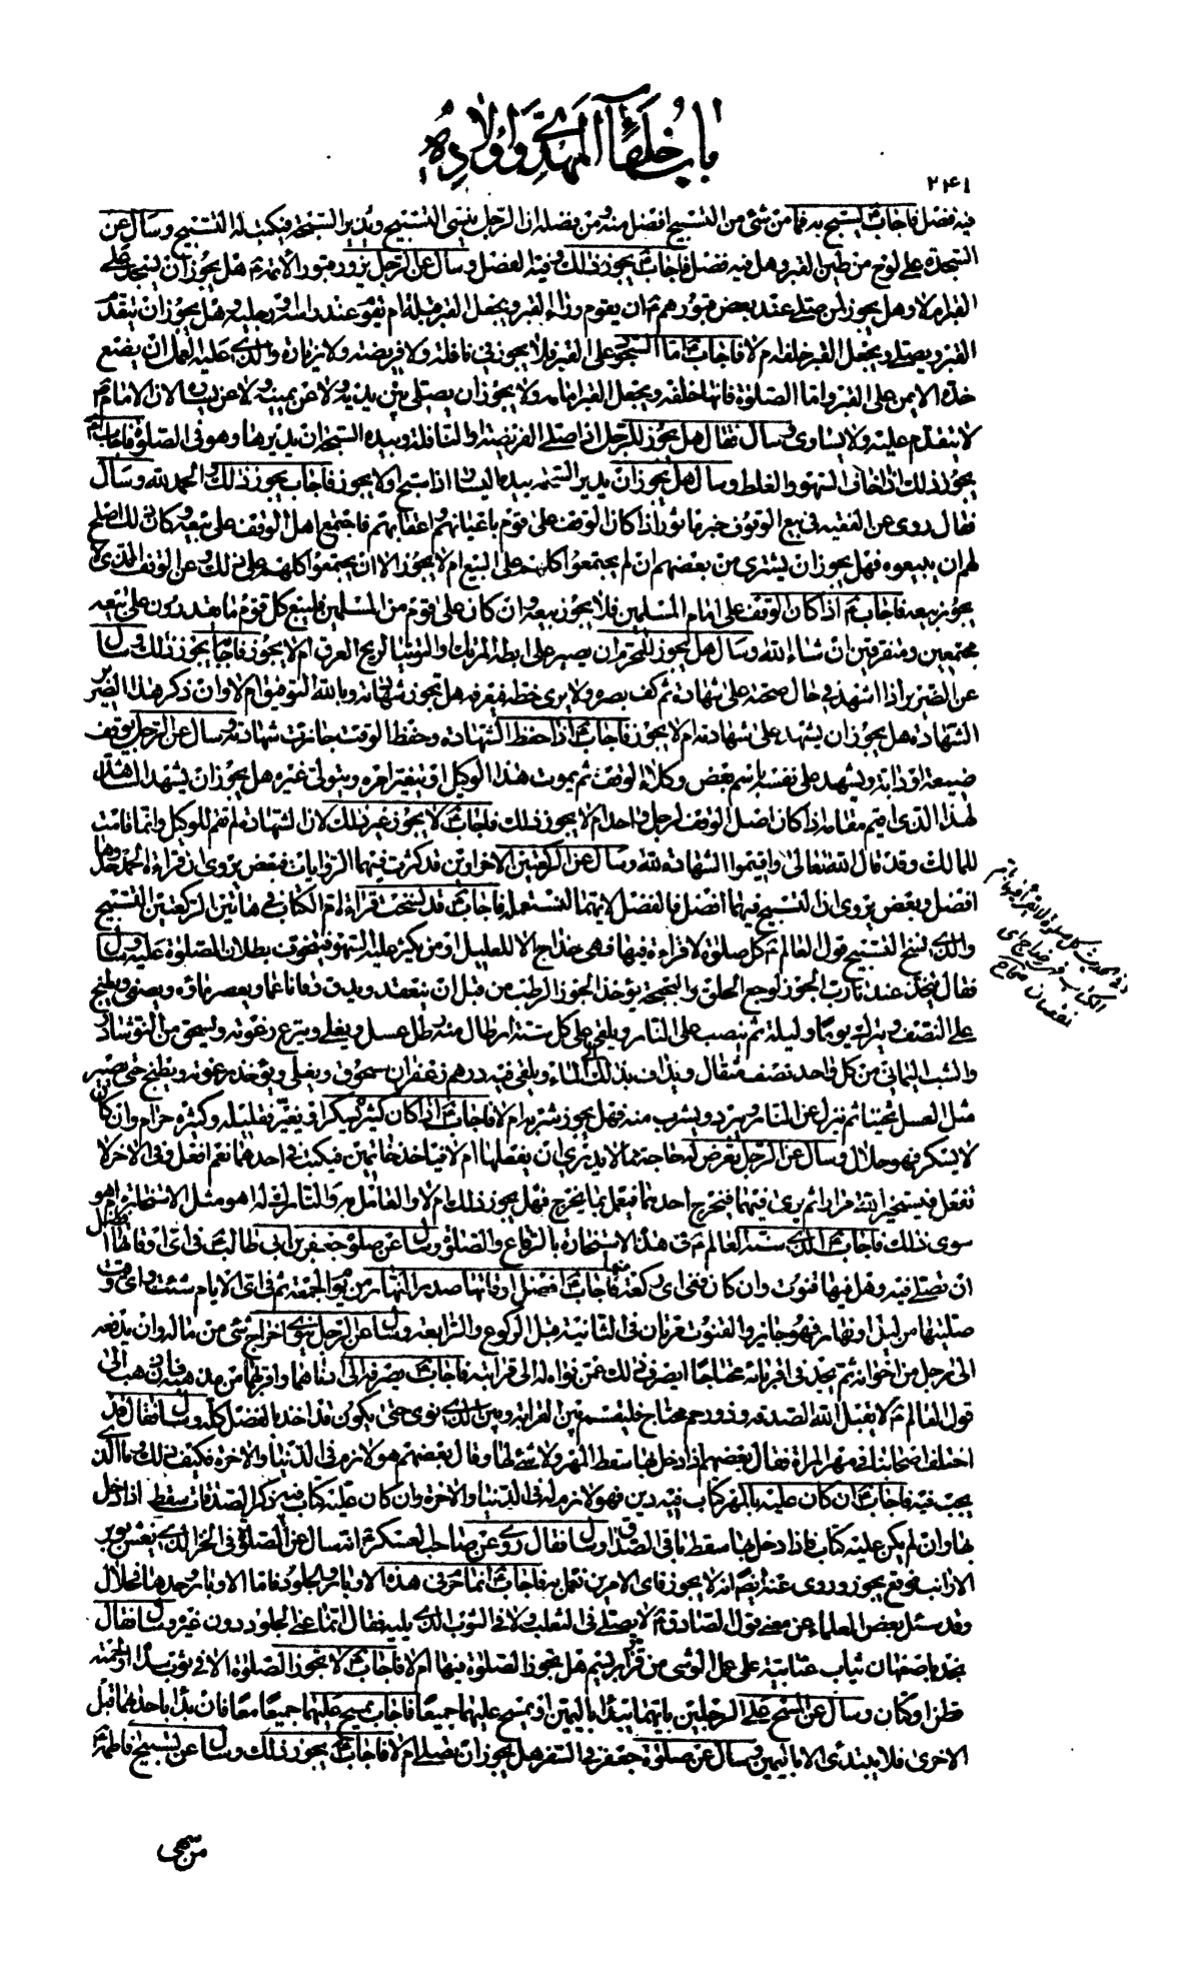 باب خلفاء المهدي واولاده
۲۴۱
فيه فضل فاجاب يسبح به فما من شئ من التسبيح افضل منه ومن فضله ان الرجل ينسى التسبيح ويدير السبحة فيكتب له التسبيح وسأل عن
السجدة على لوح من طين القبر وهل فيه فضل فاجاب يجوز ذلك وفيه الفضل وسأل عن الرجل يزور قبور الائمة هل يجوز ان يسجد على
القبر ام لا وهل يجوز لمن صلى عند بعض قبورهم ع ان يقوم وراء القبر ويجعل القبر قبلة ام يقوم عند راسه او رجليه وهل يجوز ان يتقدم
القبر ويصلى ويجعل القبر خلفه ام لا فاجاب ع اما السجود على القبر فلا يجوز فى نافلة ولا فريضة ولا زيارة والذى عليه العمل ان يضع
خده الايمن على القبر واما الصلوة فانها خلفه ويجعل القبر امامه ولا يجوز ان يصلى بين يديه ولا عن يمينه ولا عن يساره لان الامام ع
لا يتقدم عليه ولا يساوى وسأل فقال هل يجوز للرجل اذا صلى الفريضة او النافلة وبيده السبحة ان يديرها وهو فى الصلوة فاجاب ع
يجوز ذلك اذا خاف السهو والغلط وسأل هل يجوز ان يدير السبحة بيده اليسار اذا سبح او لا يجوز فاجاب يجوز ذلك والحمد لله وسأل
فقال روى عن الفقيه فى بيع الوقوف خبر ماثور اذا كان الوقف على قوم باعيانهم واعقابهم فاجتمع اهل الوقف على بيعه وكان ذلك اصلح
لهم ان يبيعوه فهل يجوز ان يشترى من بعضهم ان لم يجتمعوا كلهم على البيع ام لا يجوز الا ان يجتمعوا كلهم على ذلك وعن الوقف الذى لا
يجوز بيعه فاجاب ع اذا كان الوقف على امام المسلمين فلا يجوز بيعه وان كان على قوم من المسلمين فليبع كل قوم ما يقدرون على بيعه
مجتمعين ومتفرقين ان شاء الله وسأل هل يجوز للمحرم ان يصير على ابطه المرتك والتوتيا لريح العرق ام لا يجوز فاجاب يجوز ذلك وسأل
عن الضرير اذا اشهد فى حال صحته على شهادة ثم كف بصره ولا يرى خطه فيعرفه هل تجوز شهادته وبالله التوفيق ام لا وان ذكر هذا الضرير
الشهادة هل يجوز ان يشهد على شهادته ام لا يجوز فاجاب ع اذا حفظ الشهادة وحفظ الوقت جازت شهادته وسأل عن الرجل يوقف
ضيعة او دابة ويشهد على نفسه باسم بعض وكلاء الوقف ثم يموت هذا الوكيل او يتغير امره ويتولى غيره هل يجوز ان يشهد الشاهد
لهذا الذى اقيم مقامه اذا كان اصل الوقف لرجل واحد ام لا يجوز ذلك فاجاب ع لا يجوز غير ذلك لان الشهادة لم تقم للوكيل وانما قامت
للمالك وقد قال الله تعالى واقيموا الشهادة لله وسأل عن الركعتين الاخراوين قد كثرت فيهما الروايات فبعض يروى ان قراءة الحمد وحدها
افضل وبعض يروى ان التسبيح فيهما افضل فالفضل لايهما لنستعمله فاجاب ع قد نسخت قراءة ام الكتاب فى هاتين الركعتين التسبيح
والذى نسخ التسبيح قول العالم ع كل صلوة لا قراءة فيها فهى خداج الا للعليل او من يكثر عليه السهو فيتخوف بطلان الصلوة عليه وسأل
فقال يتخذ عندنا رب الجوز لوجع الحلق والبحبحة يؤخذ الجوز الرطب من قبل ان ينعقد ويدق دقا ناعما ويعصر ماؤه ويصفى ويطبخ
على النصف ويترك يوما وليلة ثم ينصب على النار ويلقى على كل ستة ارطال منه رطل عسل ويغلى وينزع رغوته ويسحق من النوشادر
والشب اليمانى من كل واحد نصف مثقال ويداف بذلك الماء ويلقى فيه درهم زعفران مسحوق ويغلى ويؤخذ رغوته ويطبخ حتى يصير
مثل العسل ثخينا ثم ينزل عن النار ويبرد ويشرب منه فهل يجوز شربه ام لا فاجاب ع اذا كان كثيره يسكر او يغير فقليله وكثيره حرام وان كان
لا يسكر فهو حلال وسأل عن الرجل يعرض له حاجة مما لا يدرى ان يفعلها ام لا فياخذ خاتمين فيكتب فى احدهما نعم افعل وفى الاخر لا
تفعل فيستخير الله مرارا ثم يرى فيهما فيخرج احدهما فيعمل بما يخرج فهل يجوز ذلك ام لا والعامل به والتارك له اهو مثل الاستخارة ام هو
سوى ذلك فاجاب ع الذى سنه العالم ع فى هذه الاستخارة بالرقاع والصلوة وسأل عن صلوة جعفر بن ابى طالب فى اى اوقاتها افضل
ان تصلى فيه وهل فيها قنوت وان كان ففى اى ركعة منها فاجاب ع افضل اوقاتها صدر النهار من يوم الجمعة ثم فى اى الايام شئت واى وقت
صليتها من ليل او نهار فهو جايز والقنوت مرتان فى الثانية قبل الركوع والرابعة وسأل عن الرجل ينوى اخراج شئ من ماله وان يدفعه
الى رجل من اخوانه ثم يجد فى اقربائه محتاجا ايصرف ذلك عمن نواه له الى قرابته فاجاب ع يصرفه الى ادناهما واقربهما من مذهبه فان ذهب الى
قول العالم ع لا يقبل الله الصدقة وذو رحم محتاج فليقسم بين القرابة وبين الذى نوى حتى يكون قد اخذ بالفضل كله وسأل فقال قد
اختلف اصحابنا فى مهر المراة فقال بعضهم اذا دخل بها سقط المهر ولا شئ لها وقال بعضهم هو لازم فى الدنيا والاخرة فكيف ذلك وما الذى
يجب فيه فاجاب ع ان كان عليه بالمهر كتاب فيه دين فهو لازم له فى الدنيا والاخرة وان كان عليه كتاب فيه ذكر الصدقات سقط اذا دخل
بها وان لم يكن عليه كتاب فاذا دخل بها سقط باقى الصداق وسأل فقال روى عن صاحب العسكر ع انه سئل عن الصلوة فى الخز الذى يغش بوبر
الارانب فوقع يجوز وروى عنه ايضا انه لا يجوز فاى الامرين نعمل به فاجاب ع انما حرم فى هذه الاوبار والجلود فاما الاوبار وحدها فحلال
وقد سئل بعض العلماء عن معنى قول الصادق ع لا يصلى فى الثعلب ولا فى الثوب الذى يليه فقال انما عنى الجلود دون غيره وسأل فقال
نجد باصفهان ثياب عتابية على عمل الوشى من قز وابريسم هل تجوز الصلوة فيها ام لا فاجاب ع لا تجوز الصلوة الا فى ثوب سداه او لحمته
قطن او كتان وسأل عن المسح على الرجلين بايهما يبدأ باليمين او يمسح عليهما جميعا فاجاب يمسح عليهما جميعا معا فان بدأ باحداهما قبل
الاخرى فلا يبتدى الا باليمين وسأل عن صلوة جعفر فى السفر هل يجوز ان يصلى ام لا فاجاب ع يجوز ذلك وسأل عن تسبيح فاطمة ع
كل صلوة لا
الكتاب فهى خداج اى
نقصان صحاح
من سهى